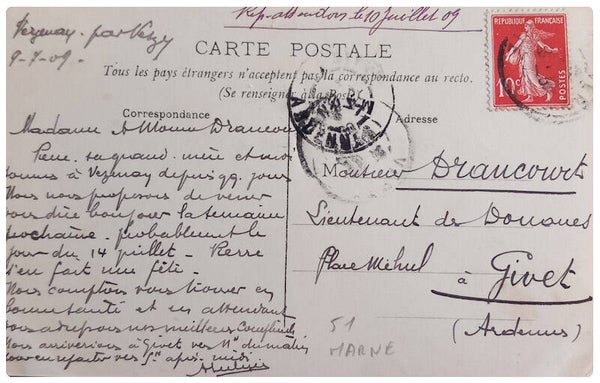 Rep. attendons le 10 juillet 09
Verzenay par Verzy
9-7-09.
CARTE POSTALE
Tous les pays étrangers n'acceptent pas la correspondance au recto.
(Se renseigner à la Poste)
REPUBLIQUE FRANÇAISE
10c
POSTES
Correspondance
Adresse
Madame & Monsieur Drancourt
Pierre, sa grand mère et moi
sommes à Verzenay depuis qq. jours
Nous nous proposons de venir
vous dire bonjour la semaine
prochaine. probablement le
jour du 14 juillet. Pierre
s'en fait une fête.
Nous comptons vous trouver en
bonne santé et en attendant
vous adressons nos meilleurs Compliments
Nous arriverions à Givet vers 11h du matin
pour en repartir vers 5h après-midi
Monsieur Drancourt
Lieutenant de Douanes
Place Méhul
à Givet
(Ardennes)
51
MARNE